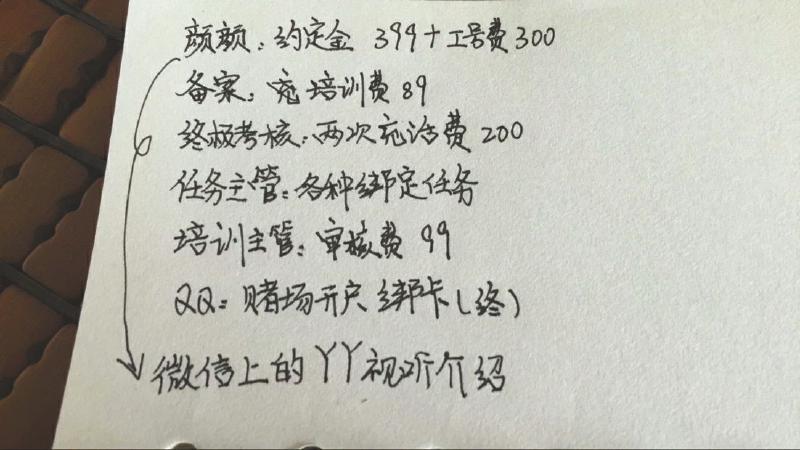 颜颜：约定金 399+工号费300
备案：充培训费89
终极考核：两次充话费200
任务主管：各种绑定任务
培训主管：审核费 99
QQ：赌场开户绑卡(终)
微信上的YY视听介绍